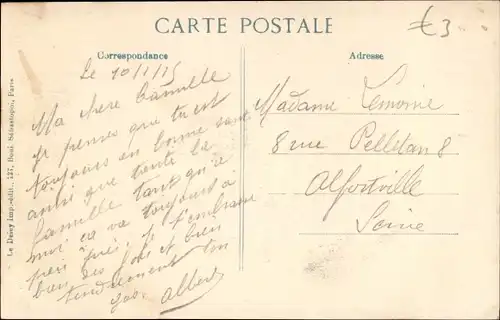 CARTE POSTALE
€3
Correspondance
Adresse
Le 10/1/15
Ma chere Camille
je penses que tu est
toujours en bonne santé
ainsi que toute la
famille tant qu'a
moi ça va toujours à
peu près. Je t'embrasse
bien des fois et bien
tendrement ton
Albert
Madame Lemoine
8 rue Pelletan 8
Alfortville
Seine
Le Deley Imp.-édit., 127, Boul. Sébastopol, Paris